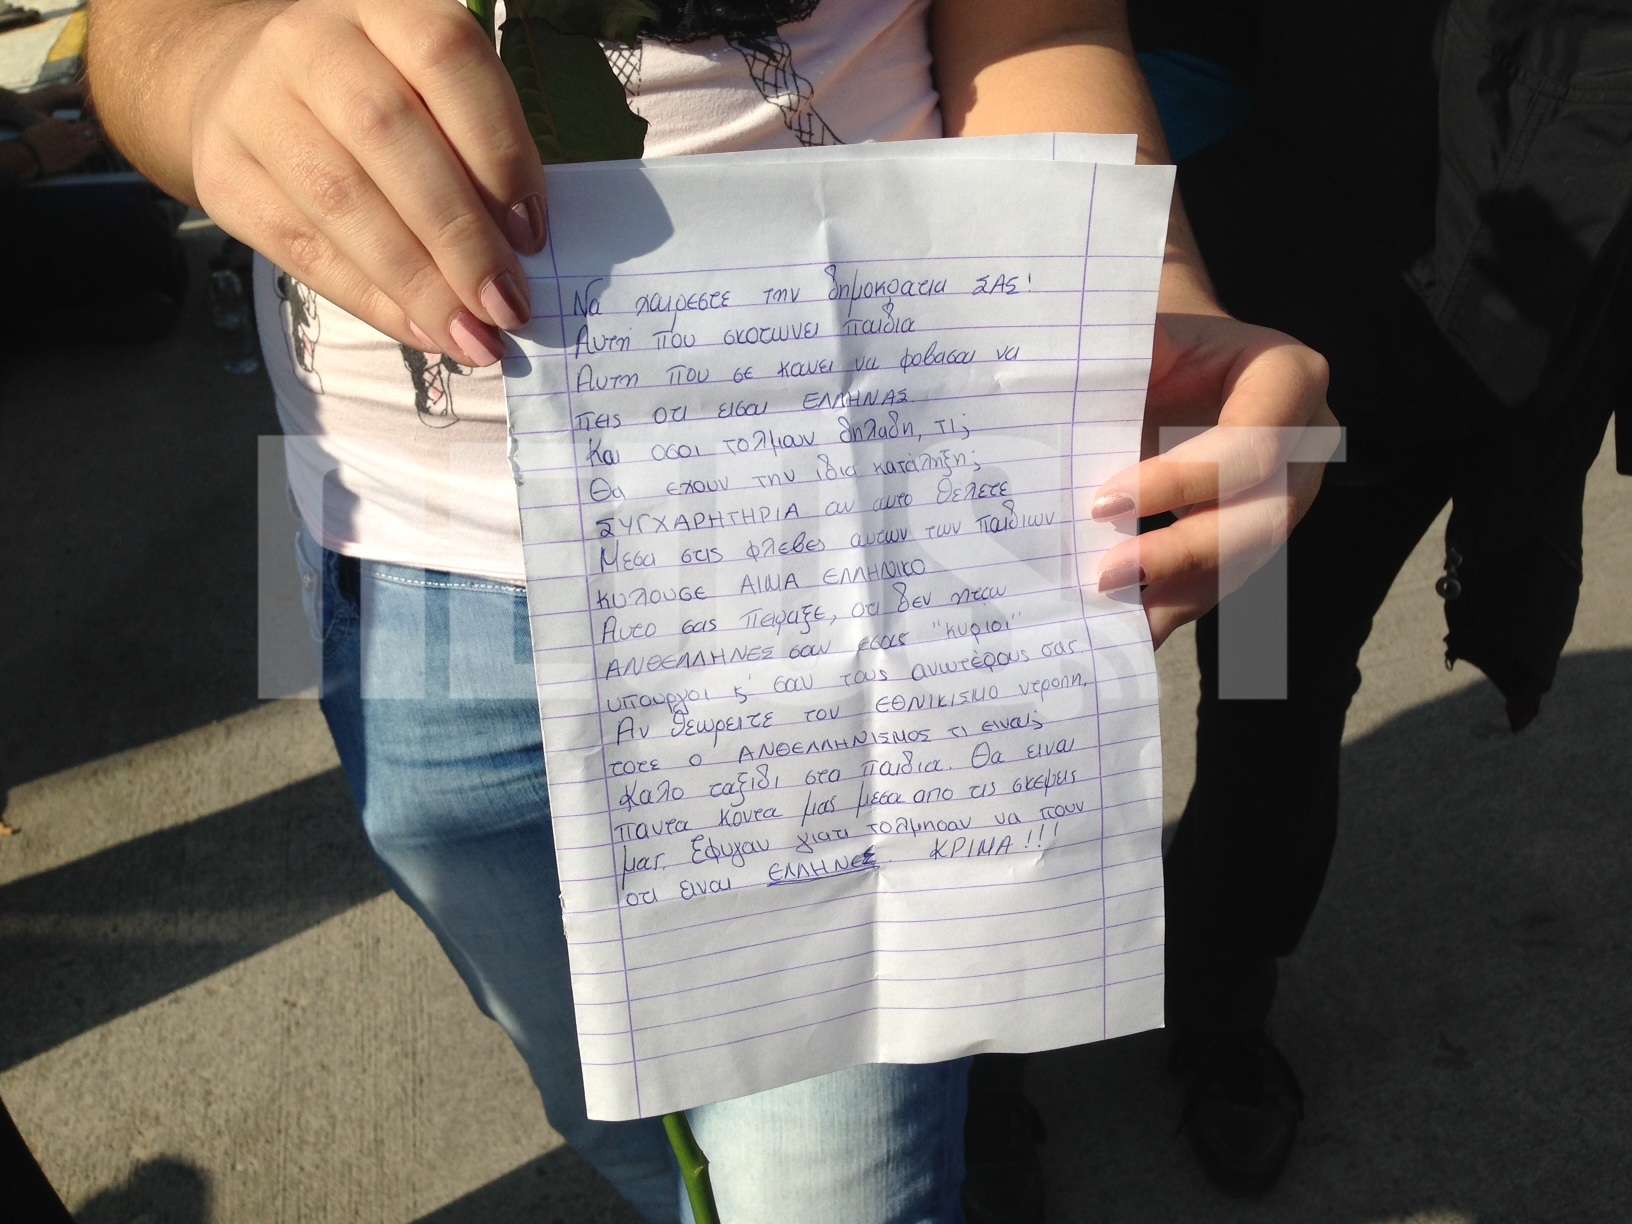 Να χαιρεστε την δημοκρατια ΣΑΣ!
Αυτη που σκοτωνει παιδια
Αυτη που σε κανει να φοβασαι να
πεις οτι εισαι ΕΛΛΗΝΑΣ.
Και οσοι τολμαν δηλαδη, τι;
Θα εχουν την ιδια κατάληξη;
ΣΥΓΧΑΡΗΤΗΡΙΑ αν αυτο θελετε
Μεσα στις φλεβες αυτων των παιδιων
κυλουσε ΑΙΜΑ ΕΛΛΗΝΙΚΟ
Αυτο σας πειραξε, οτι δεν ηταν
ΑΝΘΕΛΛΗΝΕΣ σαν εσας "κυριοι"
υπουργοι ς' σαν τους ανωτέρους σας
Αν θεωρειτε τον ΕΘΝΙΚΙΣΜΟ ντροπη,
τοτε ο ΑΝΘΕΛΛΗΝΙΣΜΟΣ τι ειναι;
Καλο ταξιδι στα παιδια. Θα ειναι
παντα κοντα μας μεσα απο τις σκεψεις
μας. Εφυγαν γιατι τολμησαν να πουν
οτι ειναι ΕΛΛΗΝΕΣ. ΚΡΙΜΑ!!!